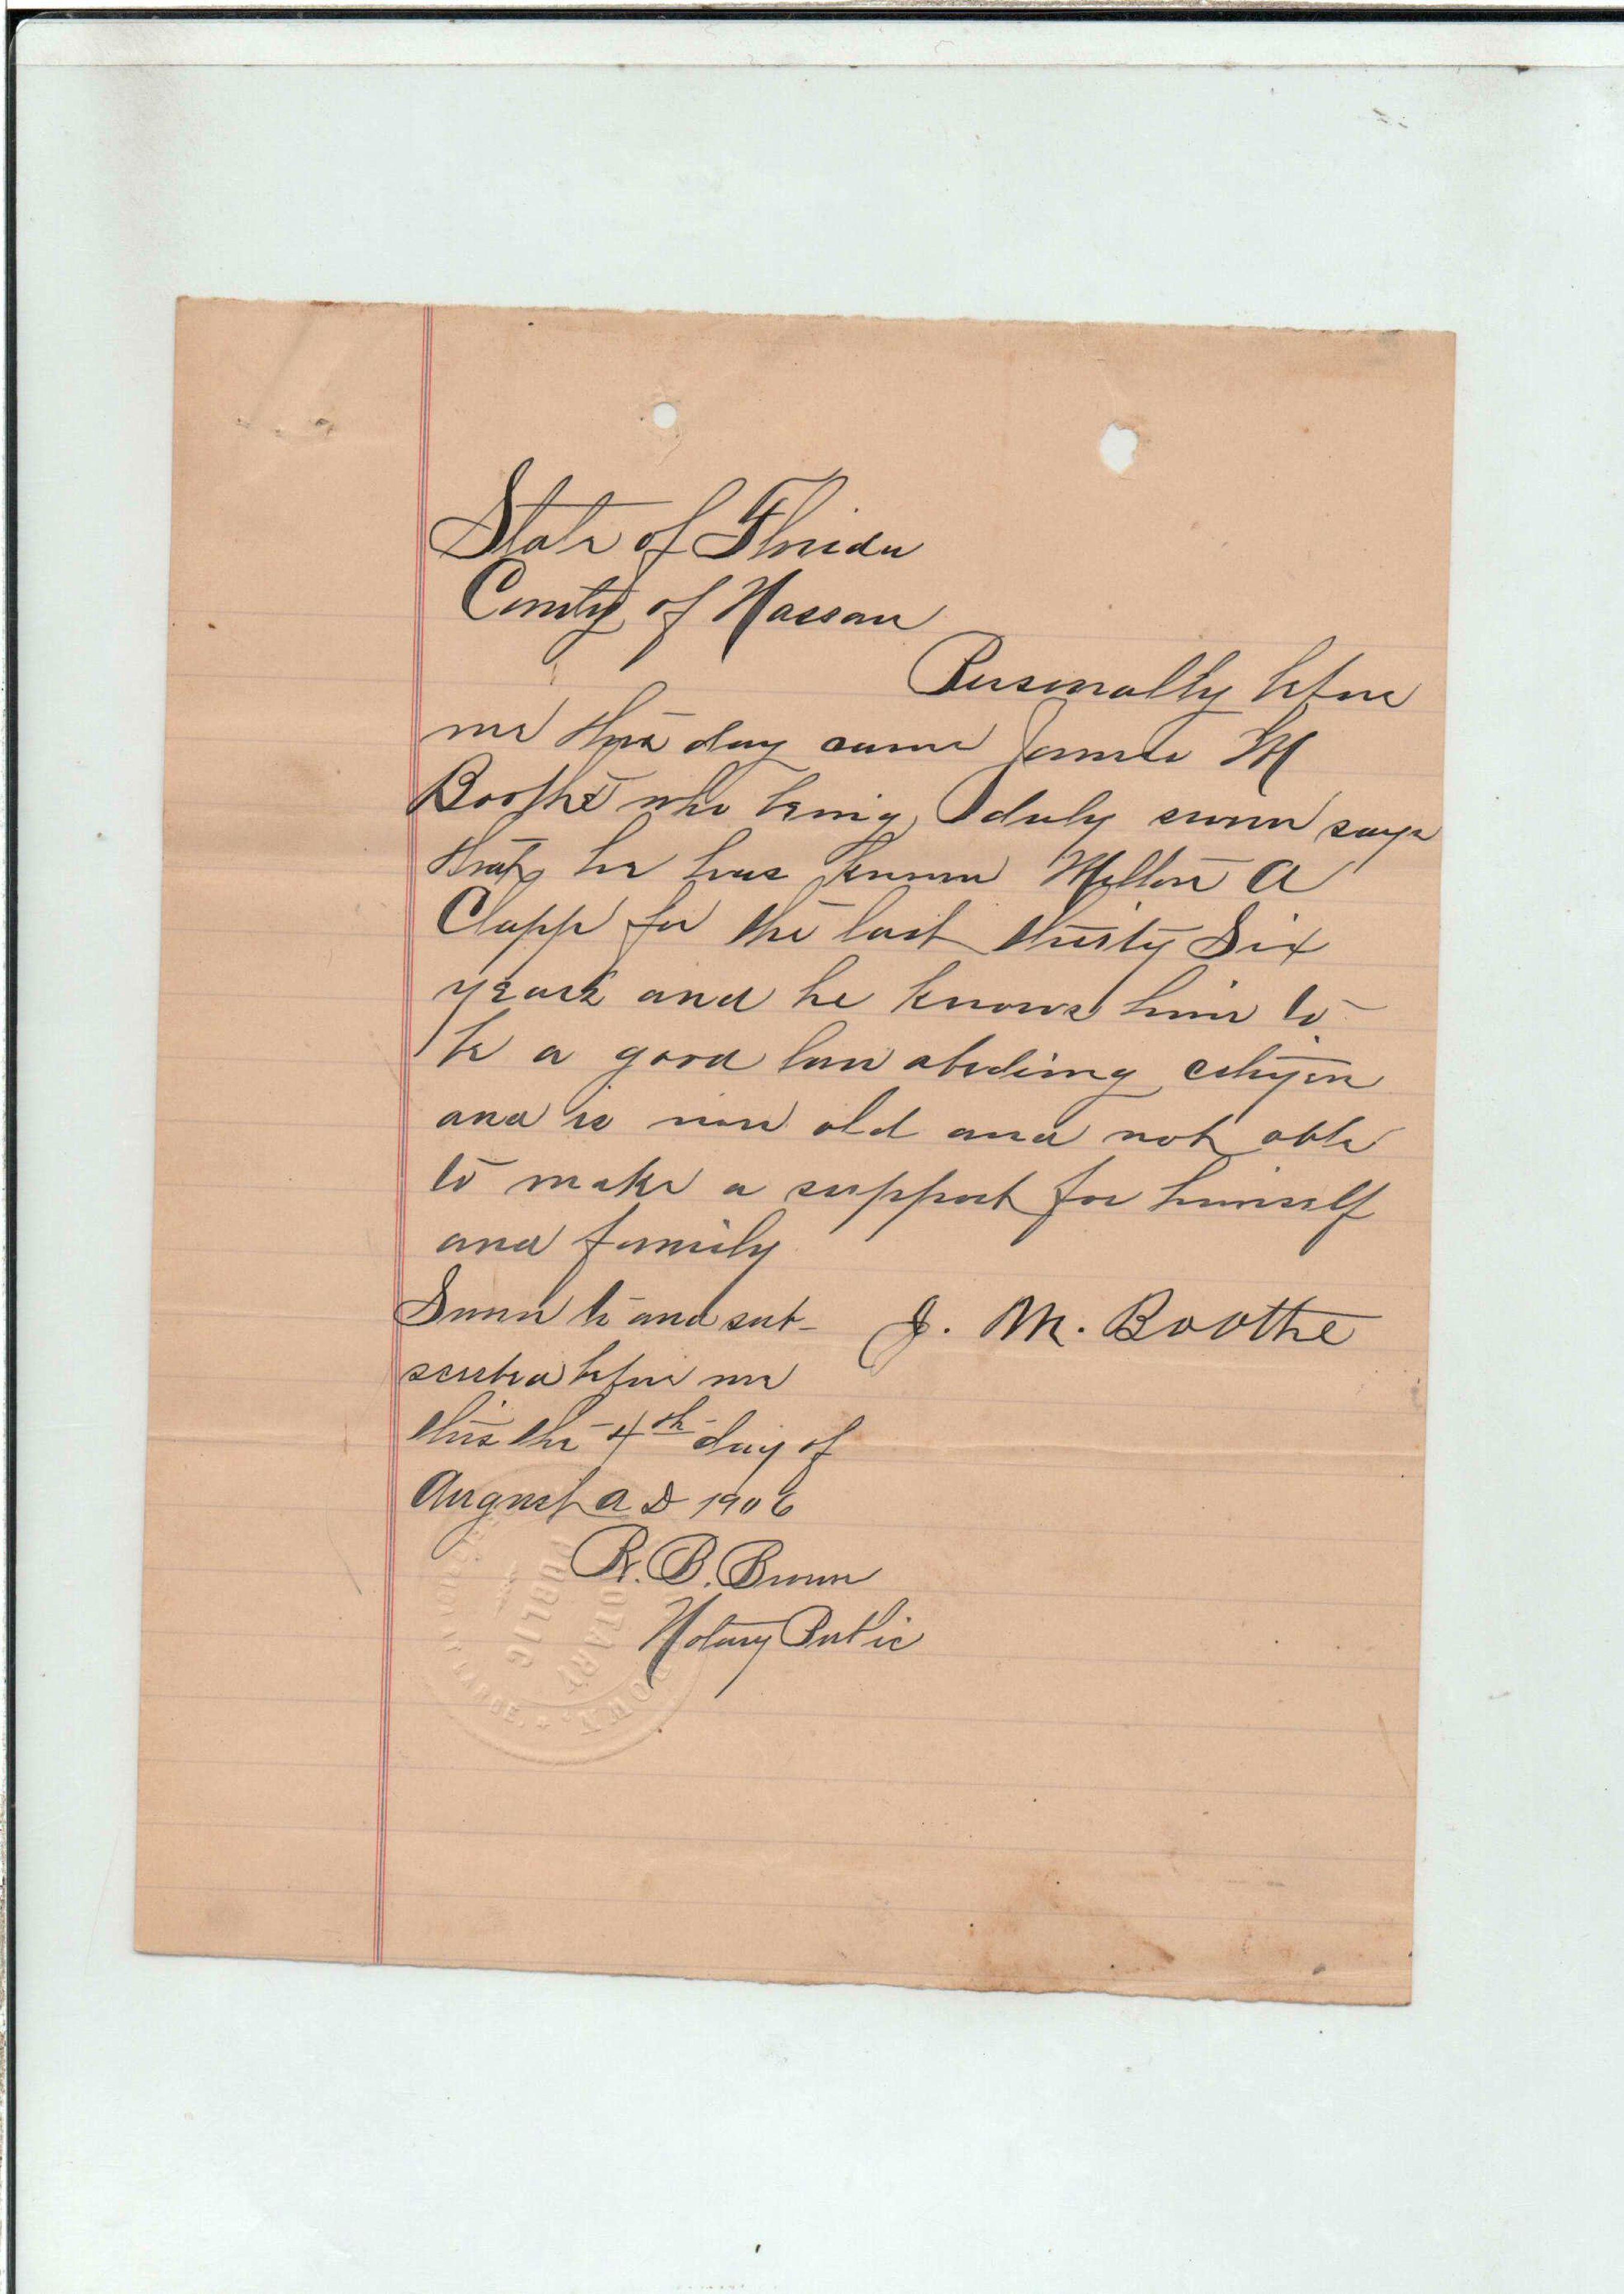 State of Florida
County of Nassau
Personally before
me this day came James M
Boothe who being duly sworn says
that he has known Milton A
Clapp for the last thirty Six
years and he knows him to
be a good law abideing citizen
and is now old and not able
to make a support for himself
and family
Sworn to and sub-
J. M. Boothe
scribed before me
this the 4th day of
August A D 1906
R. B. Brown
Notary Public
NOTARY
PUBLIC
LARGE.